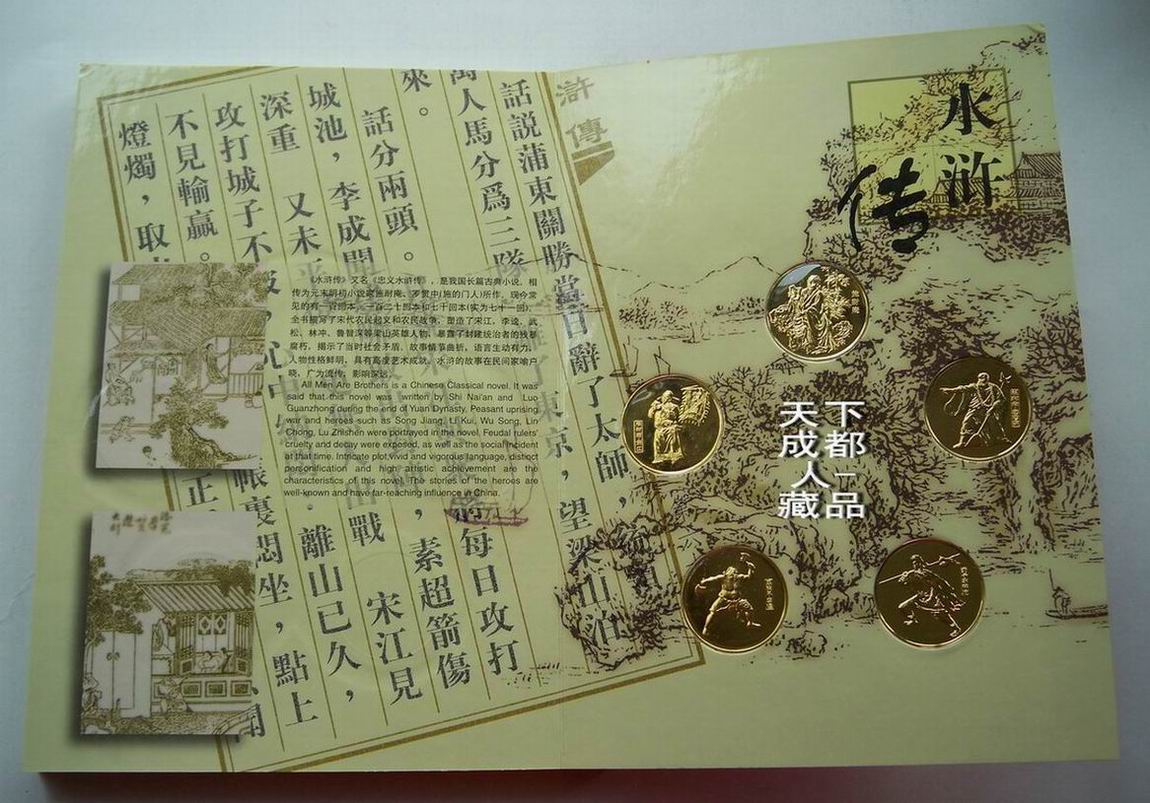 水浒
传
浒傳
話説蒲東關勝當日辭了太師，
望梁山泊
萬人馬分爲三隊
每日攻打
來。
話分兩頭。
素超箭傷
城池，李成聞
戰 宋江見
深重 又未
離山已久，
攻打城子不
不見輸贏。
帳裏悶坐，點上
燈燭，取
《水浒传》又名《忠义水浒传》，是我国长篇古典小说。相
传为元末明初小说家施耐庵、罗贯中(施的门人)所作，现今常
见的有一百回本、一百二十回本和七十回本(实为七十一回)。
全书描写了宋代农民起义和农民战争，塑造了宋江、李逵、武
松、林冲、鲁智深等梁山英雄人物，暴露了封建统治者的残暴
腐朽，揭示了当时社会矛盾。故事情节曲折，语言生动有力，
人物性格鲜明，具有高度艺术成就。水浒的故事在民间家喻户
晓，广为流传，影响深远。
All Men Are Brothers is a Chinese Classical novel. It was
said that this novel was written by Shi Nai'an and Luo
Guanzhong during the end of Yuan Dynasty. Peasant uprising
war and heroes such as Song Jiang, Li Kui, Wu Song, Lin
Chong, Lu Zhishen were portrayed in the novel. Feudal rulers'
cruelty and decay were exposed, as well as the social incident
at that time. Intricate plot,vivid and vigorous language, distinct
personification and high artistic achievement are the
characteristics of this novel. The stories of the heroes are
well-known and have far-reaching influence in China.
天下
成都
人一
藏品